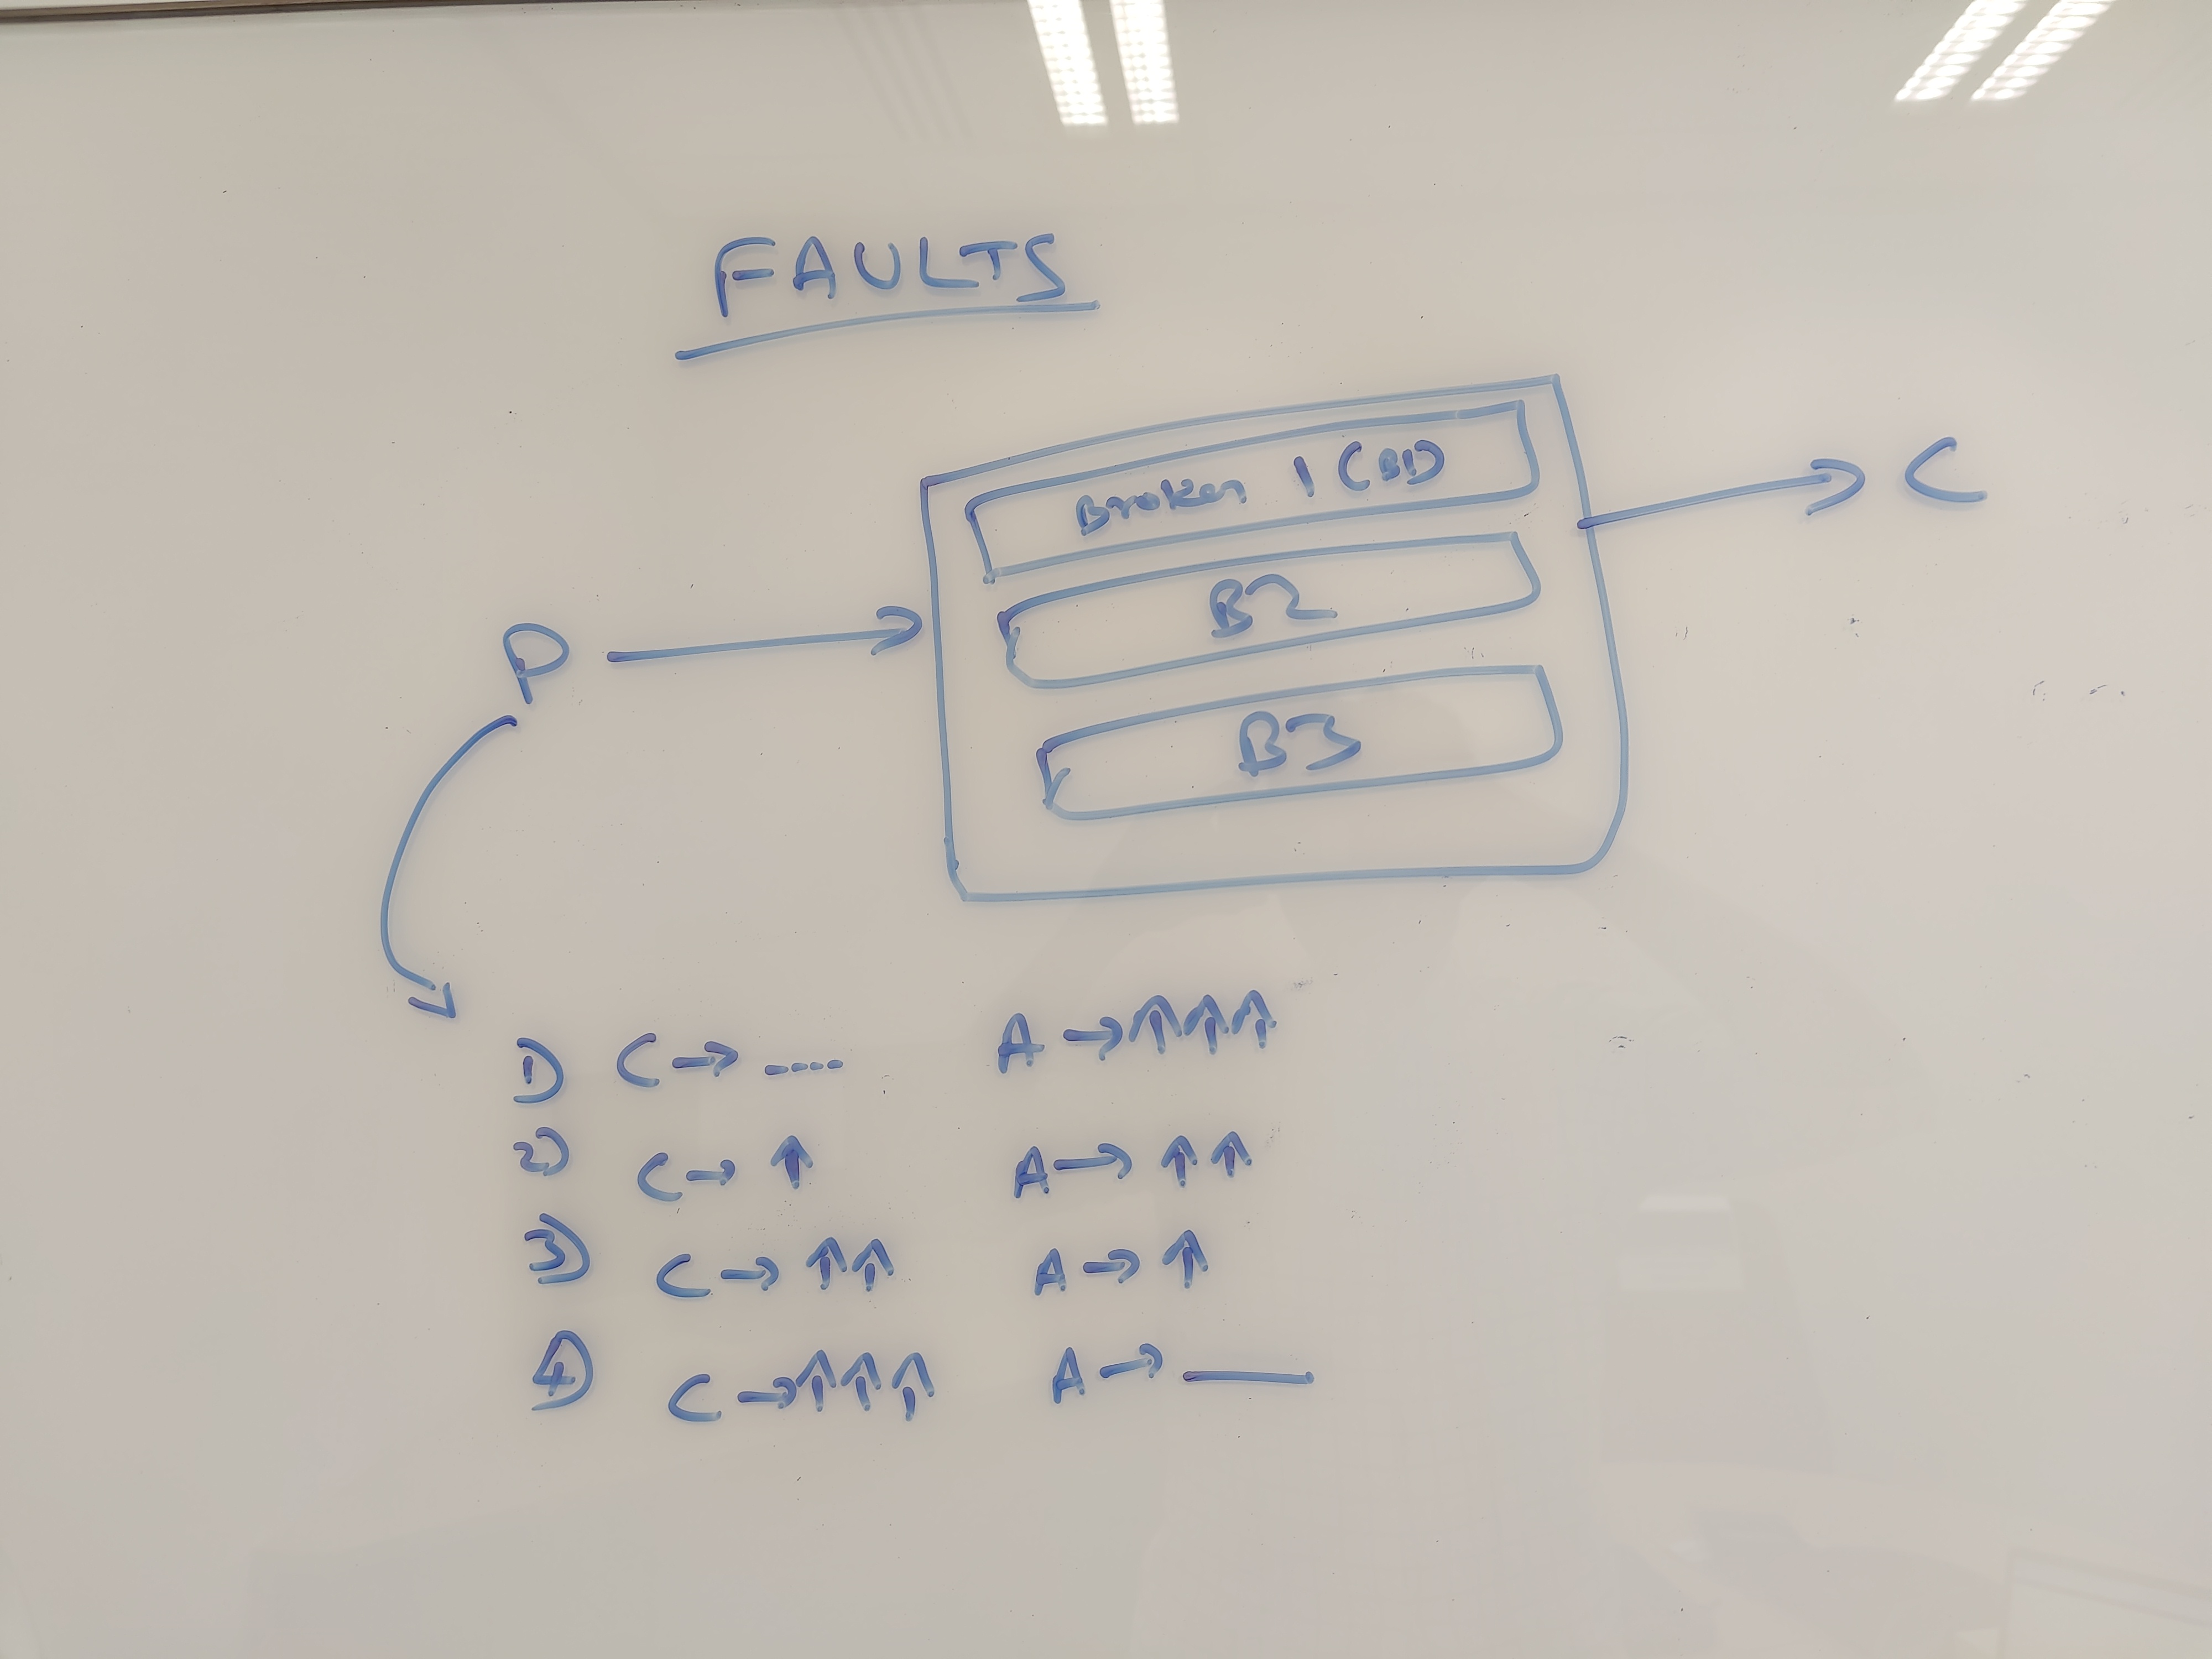 FAULTS
Broker 1 (B1)
B2
B3
P
C
1) C → ---- A → ↑↑↑
2) C → ↑ A → ↑↑
3) C → ↑↑ A → ↑
4) C → ↑↑↑ A → —